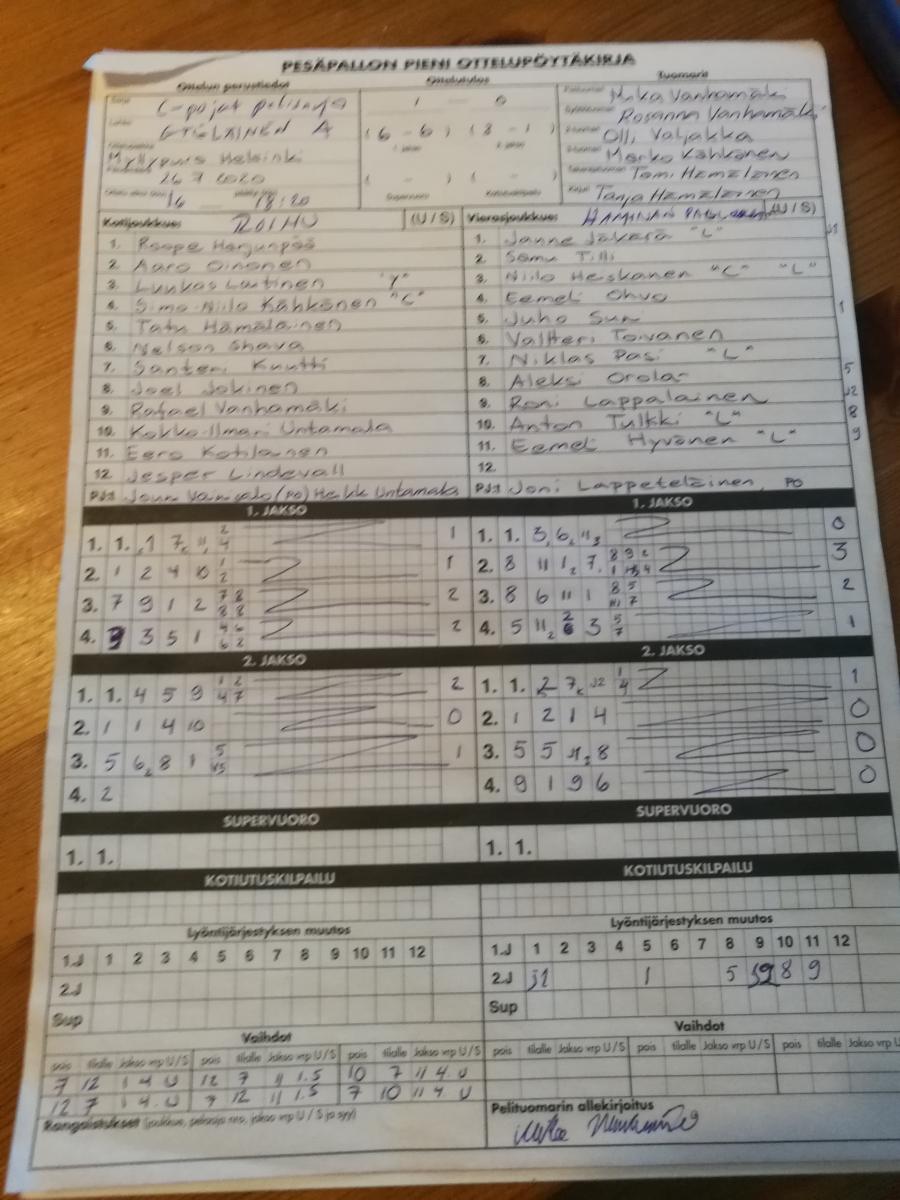 PESÄPALLON PIENI OTTELUPÖYTÄKIRJA
Ottelun perustiedot
Ottelutulos
Tuomarit
C-pojat
1 — 0
Mika Vanhamäki
ETELÄINEN A
(6 - 6) (3 - 1)
Rosanna Vanhamäki
Olli Valjakka
Myllypuro Helsinki
Marko Kähkönen
26 7 2020
( - ) ( - )
Tomi Hämäläinen
16 18:20
Tanja Hämäläinen
Kotijoukkue ROIHU (U / S)
1. Roope Harjunpää
2. Aaro Oinonen
3. Luukas Laitinen
4. Simo-Niilo Kähkönen "C"
5. Tatu Hämäläinen
6. Nelson Shava
7. Santeri Kuutti
8. Joel Jokinen
9. Rafael Vanhamäki
10. Kokko-Ilmari Untamala
11. Eero Kohlainen
12. Jesper Lindevall
PJ:t (PO) Untamala
Vierasjoukkue HAMINAN (U / S)
1. Janne "L" J1
2. Samu Tilli
3. Niilo Heskanen "C" "L"
4. Eemeli Ohvo
5. Juho Suri 1
6. Valtteri Toivanen
7. Niklas Pasi "L"
8. Aleksi Orola 5
9. Roni Lappalainen J2
10. Anton Tulkki "L" 8
11. Eemeli Hyvönen "L" 9
12.
PJ:t Joni Lappeteläinen, PO
1. JAKSO
1. JAKSO
1. 1. 1 7 11 2 4 1
1. 1. 3 6 11 3 0
2. 1 2 4 10 1 2 1
2. 8 11 1 2 7 8 9 2 3
3. 7 9 1 2 7 8 8 8 2
3. 8 6 11 1 8 5 7 2
4. 3 3 5 1 4 6 6 2 2
4. 5 11 2 3 5 7 1
2. JAKSO
2. JAKSO
1. 1. 4 5 9 1 2 4 7 2
1. 1. 2 7 J2 1 4 1
2. 1 1 4 10 0
2. 1 2 1 4 0
3. 5 6 2 8 1 5 1
3. 5 5 J1 2 8 0
4. 2
4. 9 1 9 6 0
SUPERVUORO
SUPERVUORO
1. 1.
1. 1.
KOTIUTUSKILPAILU
KOTIUTUSKILPAILU
Lyöntijärjestyksen muutos
Lyöntijärjestyksen muutos
1.J 1 2 3 4 5 6 7 8 9 10 11 12
1.J 1 2 3 4 5 6 7 8 9 10 11 12
2.J
2.J J1 1 5 J2 8 9
Sup
Sup
Vaihdot
Vaihdot
pois tilalle Jakso vrp U/S pois tilalle Jakso vrp U/S pois tilalle Jakso vrp U/S
pois tilalle Jakso vrp U/S pois tilalle Jakso vrp U/S pois tilalle Jakso vrp U/S
7 12 1 4 U 12 7 11 1.5 10 7 11 4 U
12 7 1 4 U 7 12 11 1.5 7 10 11 4 U
Rangaistukset (joukkue, pelaaja nro, jakso vrp U / S ja syy)
Pelituomarin allekirjoitus